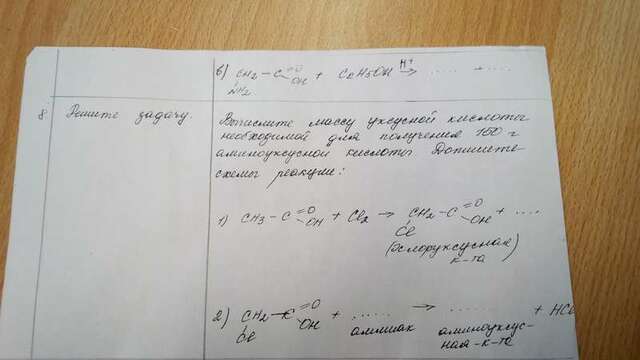 б) CH2 – C =O OH + C2H5OH H+ → ..... + ....
NH2
8 Решите задачу. Вычислите массу уксусной кислоты
необходимой для получения 150 г
аминоуксусной кислоты Допишите
схемы реакции:
1) CH3 – C =O OH + Cl2 → CH2 – C =O OH + ....
Cl
(хлоруксусная
к-та)
2) CH2 – C =O OH + ...... → ....... + HCl
Cl аммиак аминоуксус-
ная к-та